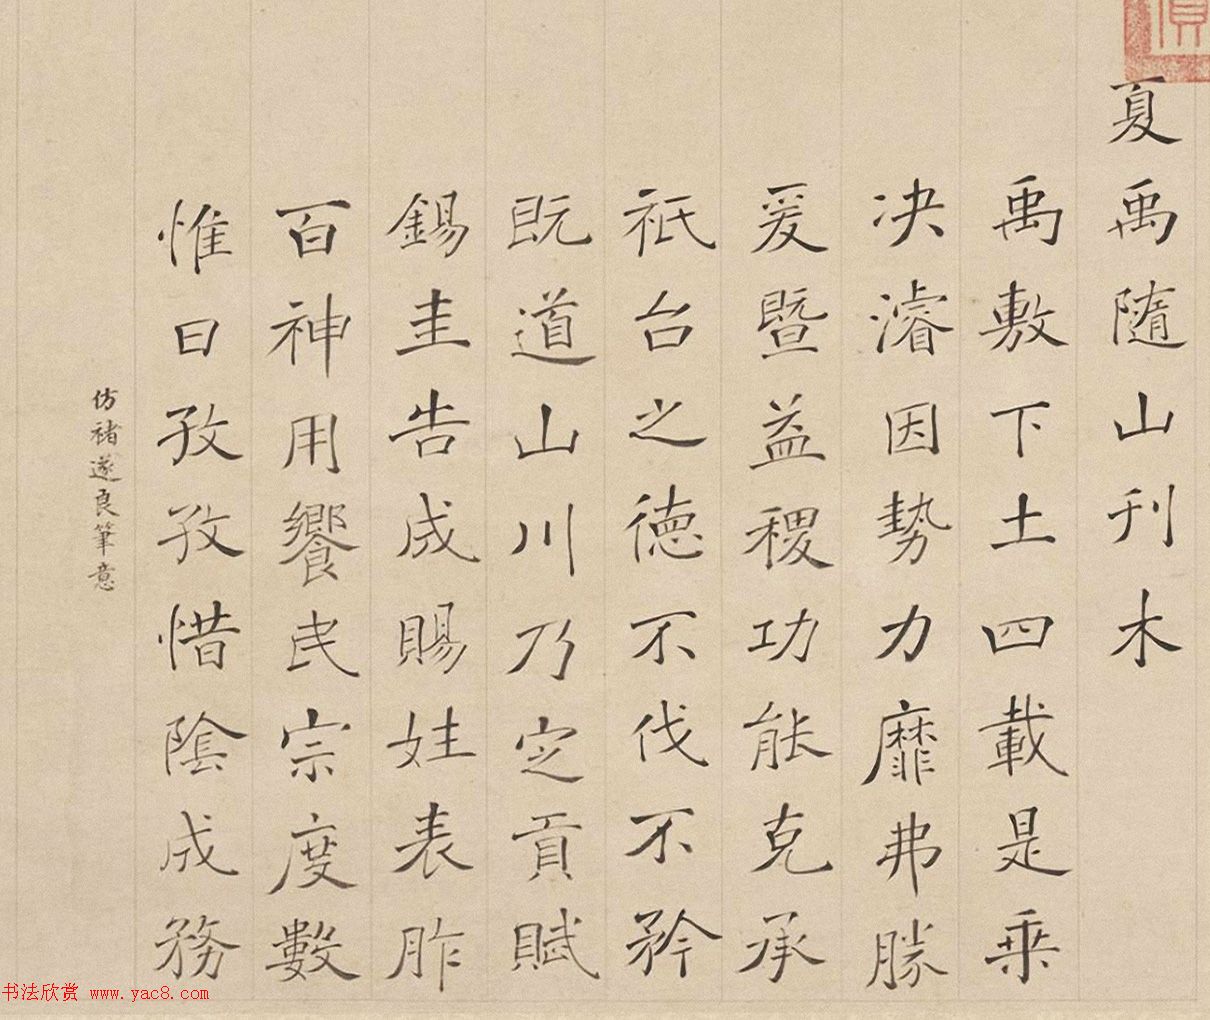 夏禹随山刊木
禹敷下土四載是乗
决濬因勢力靡弗勝
爰暨益稷功能克承
祗台之德不伐不矜
既道山川乃定貢賦
錫圭告成賜姓表胙
百神用饗民宗度數
惟日孜孜惜陰成務
仿褚遂良筆意
书法欣赏 www.yac8.com